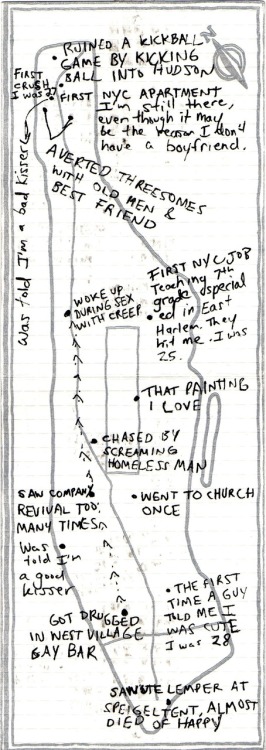 RUINED A KICKBALL
GAME BY KICKING
BALL INTO HUDSON
FIRST
CRUSH
I was 27
FIRST NYC APARTMENT
I'm still there,
even though it may
be the reason I don't
have a boyfriend.
Was told I'm a bad kisser
AVERTED THREESOMES
WITH OLD MEN &
BEST FRIEND
FIRST NYC JOB
Teaching 7th
grade special
ed in East
Harlem. They
hit me. I was
25.
WOKE UP
DURING SEX
WITH CREEP
THAT PAINTING
I LOVE
CHASED BY
SCREAMING
HOMELESS MAN
SAW COMPANY
REVIVAL TOO
MANY TIMES
WENT TO CHURCH
ONCE
Was
told I'm
a good
kisser
THE FIRST
TIME A GUY
TOLD ME I
WAS CUTE
I was 28
GOT DRUGGED
IN WEST VILLAGE
GAY BAR
SAW UTE LEMPER AT
SPEIGELTENT, ALMOST
DIED OF HAPPY